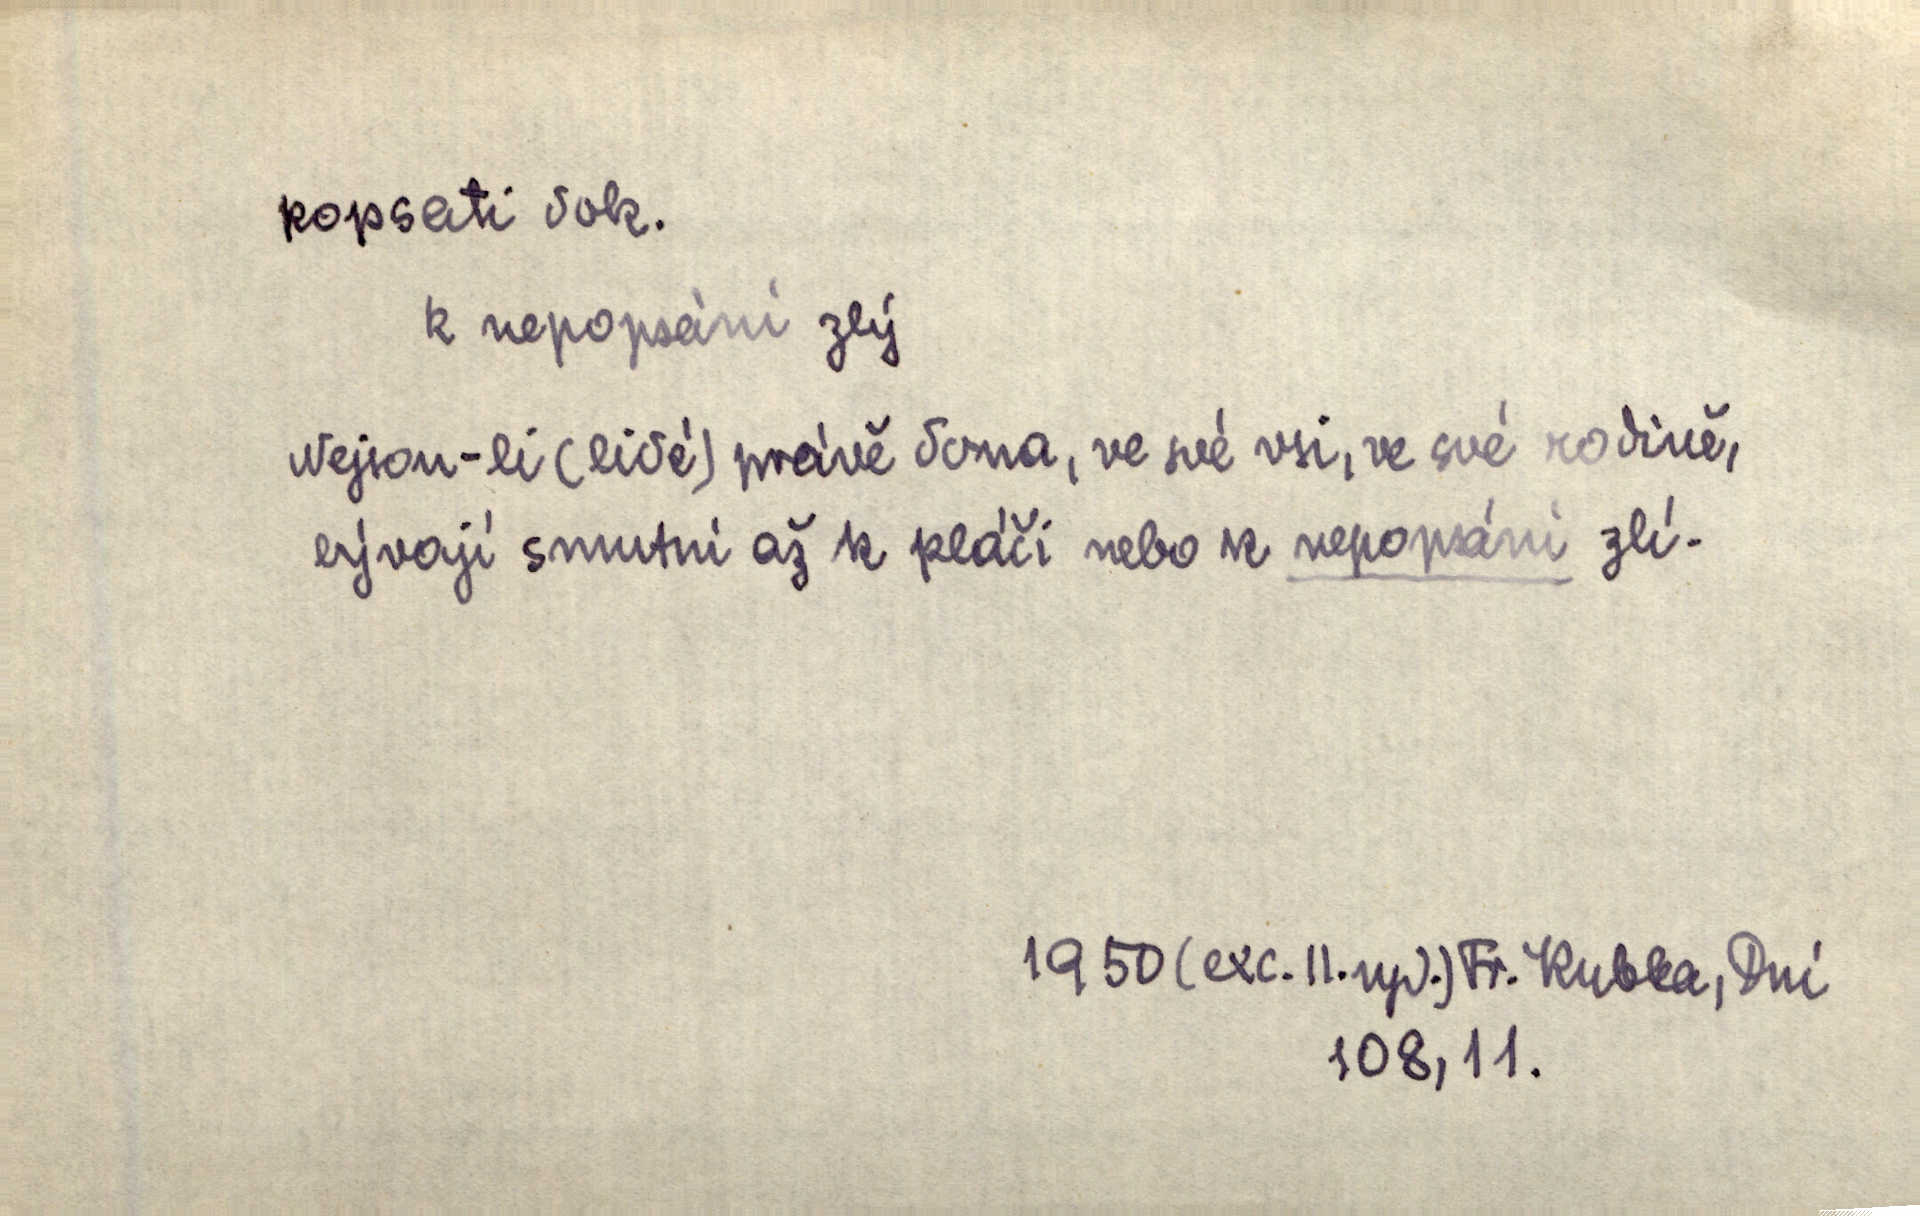 popsati dok.
k nepopsání zlý
Nejsou-li (lidé) právě doma, ve své vsi, ve své rodině,
bývají smutni až k pláči nebo k nepopsání zlí.
1950 (exc. II. vyd.) Fr. Kubka, Dni
108, 11.